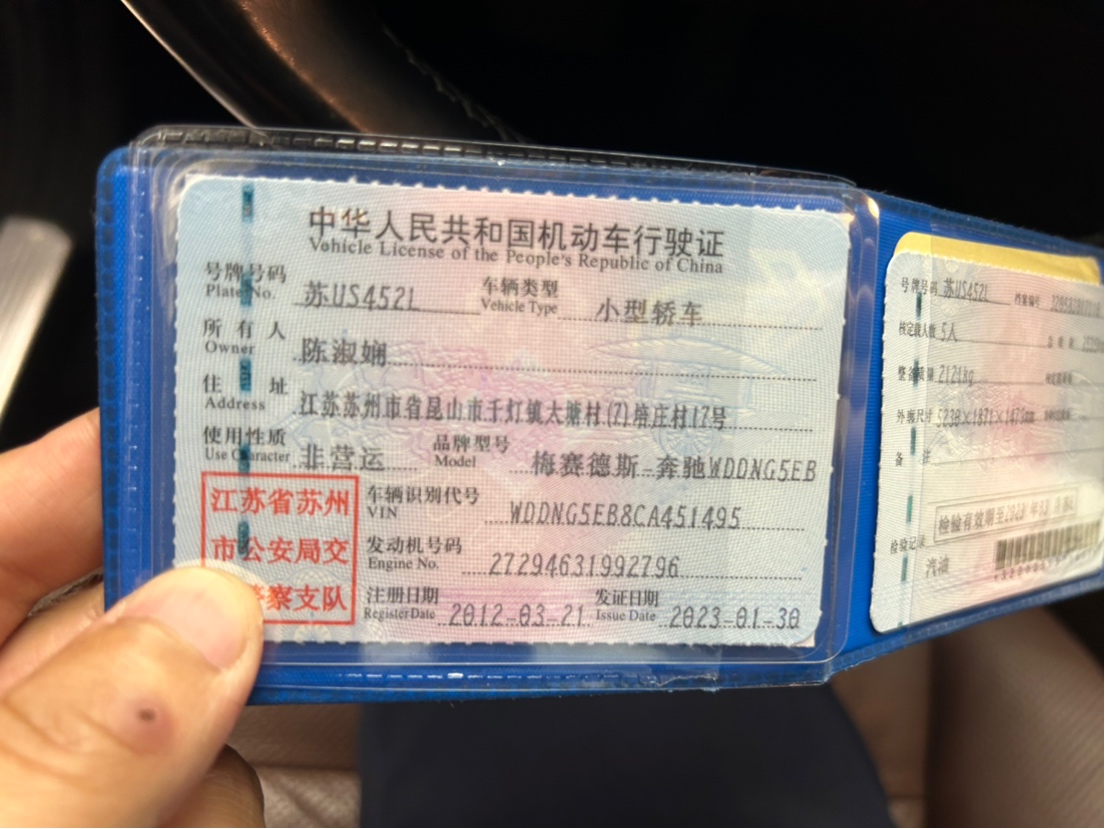 中华人民共和国机动车行驶证
Vehicle License of the People's Republic of China
号牌号码 苏US452L 车辆类型 小型轿车
Plate No. Vehicle Type
所有人 陈淑娴
Owner
住址 江苏苏州市省昆山市千灯镇大塘村(7)培庄村17号
Address
使用性质 非营运 品牌型号 梅赛德斯-奔驰WDDNG5EB
Use Character Model
江苏省苏州
市公安局交
警察支队
车辆识别代号 WDDNG5EB8CA451495
VIN
发动机号码 27294631992796
Engine No.
注册日期 2012-03-21 发证日期 2023-01-30
Register Date Issue Date
号牌号码 苏US452L 档案编号
核定载人数 5人
整备质量 2121kg
外廓尺寸
备注
检验有效期至
检验记录
汽油